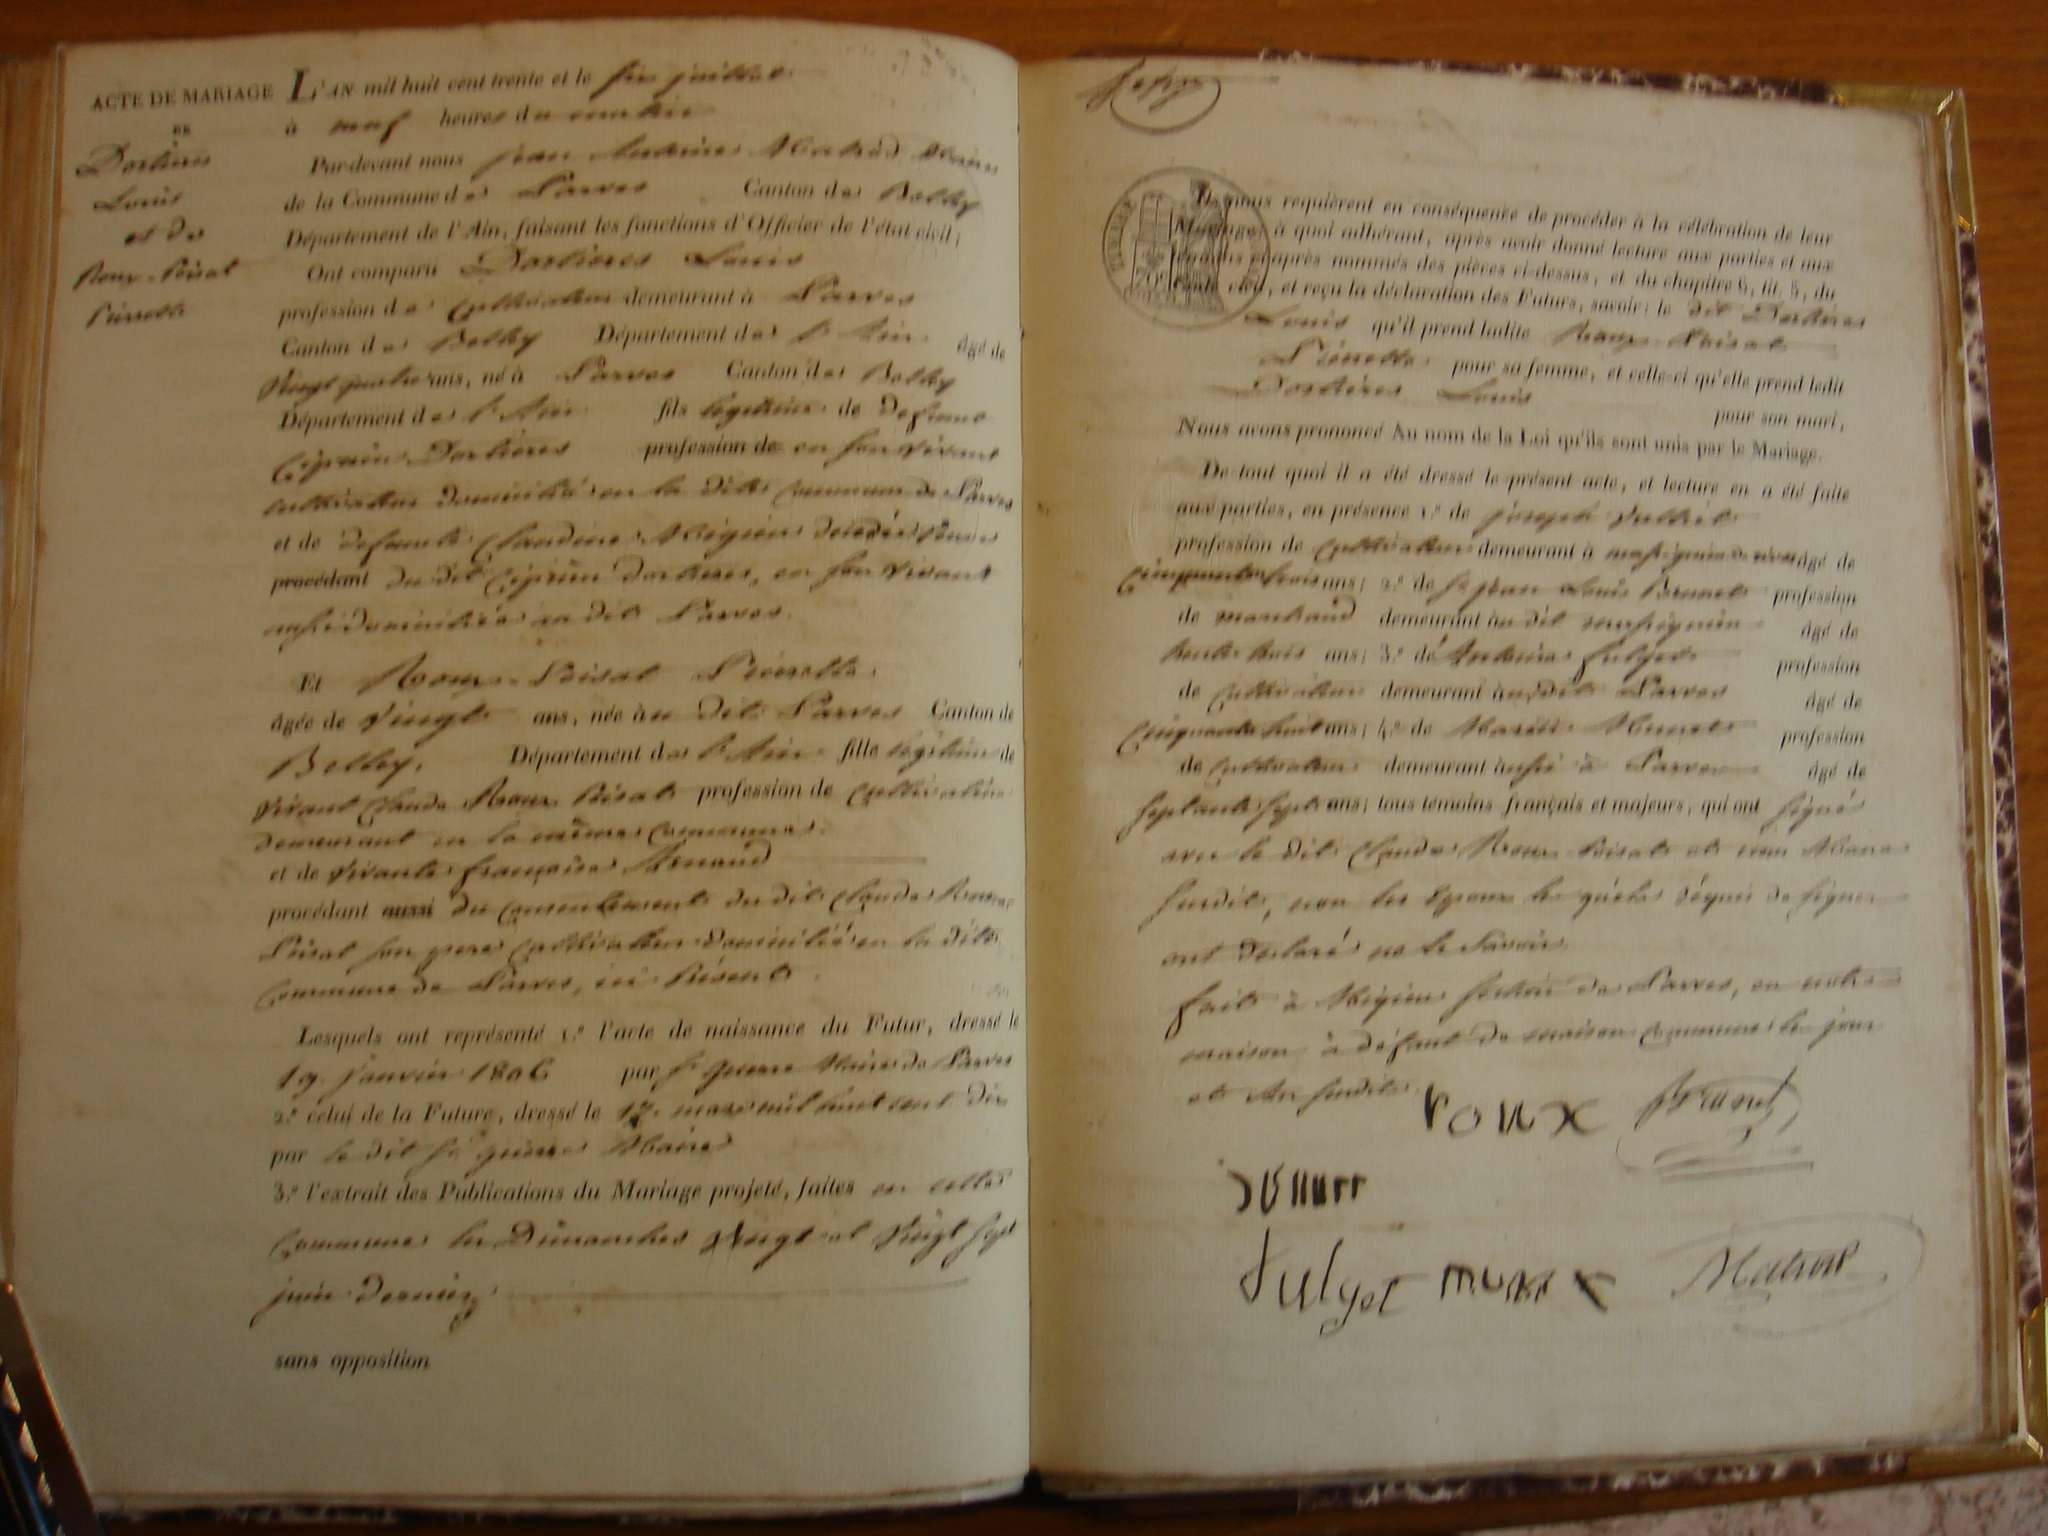 ACTE DE MARIAGE
DE
Dortieres
Louis
et de
Roux-Poisat
Pierrette
L'AN mil huit cent trente et le six juillet
à neuf heures du matin
Par-devant nous jean Antoine Maire
de la Commune de Parves Canton de Belley
Département de l'Ain, faisant les fonctions d'Officier de l'état civil;
Ont comparu Dortieres Louis
profession de cultivateur demeurant à Parves
Canton de Belley Département de l'Ain âgé de
Vingt quatre ans, né à Parves Canton de Belley
Département de l'Ain fils légitime de defunt
Ciprien Dortieres profession de en son vivant
cultivateur domicilié en la dite commune de Parves
et de defunte Claudine
procédant du dit Ciprien dortieres, en son vivant
aussi domicilié au dit Parves.
Et Roux-Poisat Pierrette
âgée de Vingt ans, née au dit Parves Canton de
Belley. Département de l'Ain fille légitime de
vivant Claude Roux Poisat profession de cultivateur
demeurant en la même commune.
et de vivante françoise Arnaud
procédant aussi du consentement du dit Claude Roux
Poisat son pere cultivateur domicilié en la dite
Commune de Parves, ici Présent.
Lesquels ont représenté 1.º l'acte de naissance du Futur, dressé le
19 janvier 1806 par sr guerre Maire de Parves
2.º celui de la Future, dressé le 17 mars mil huit cent dix
par le dit sr guerre Maire
3.º l'extrait des Publications du Mariage projeté, faites en cette
Commune les Dimanches vingt et vingt sept
juin dernier
sans opposition
nous requièrent en conséquence de procéder à la célébration de leur
Mariage, à quoi adhérant, après avoir donné lecture aux parties et aux
témoins ci-après nommés des pièces ci-dessus, et du chapitre 6, tit. 5, du
Code civil, et reçu la déclaration des Futurs, savoir: le dit Dortieres
Louis qu'il prend ladite Roux-Poisat
Pierrette pour sa femme, et celle-ci qu'elle prend ledit
Dortieres Louis
pour son mari,
Nous avons prononcé Au nom de la Loi qu'ils sont unis par le Mariage.
De tout quoi il a été dressé le présent acte, et lecture en a été faite
aux parties, en présence 1.º de joseph
profession de cultivateur demeurant à massignieu de rives âgé de
Cinquante trois ans; 2.º de sr jean Louis Brunet profession
de marchand demeurant au dit massignieu âgé de
trente trois ans; 3.º de Antoine Fulget profession
de cultivateur demeurant au dit Parves âgé de
Cinquante huit ans; 4.º de Munet profession
de cultivateur demeurant aussi à Parves âgé de
septante sept ans; tous témoins français et majeurs, qui ont signé
avec le dit Claude Roux Poisat et nous Maire
susdit, non les Epoux les quels réquis de signer
ont declaré ne le Savoir.
fait à section de Parves, en notre
maison à défaut de maison commune les jour
et An susdits.
roux Brunet
fulget munet